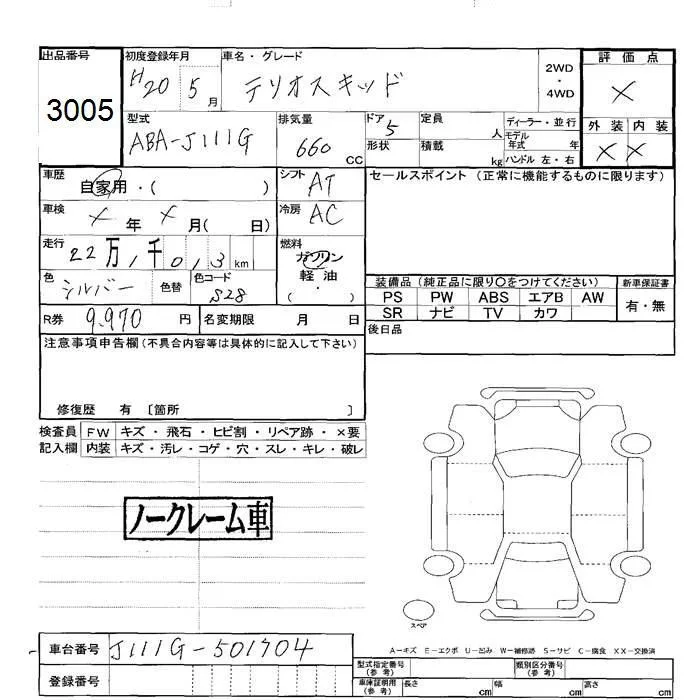 出品番号
3005
初度登録年月
H20 5月
車名・グレード
テリオスキッド
2WD
・
4WD
評価点
×
型式
ABA-J111G
排気量
660 CC
ドア
5
形状
定員
人
積載
kg
ディーラー・並行
モデル年式 年
ハンドル 左・右
外装 内装
× ×
車歴
自家用・( )
シフト
AT
セールスポイント (正常に機能するものに限ります)
車検
× 年 × 月( 日)
冷房
AC
走行
22万,1千0,3 km
燃料
ガソリン
軽油
・
( )
色
シルバー
色替
色コード
S28
装備品 (純正品に限り○をつけてください)
新車保証書
PS PW ABS エアB AW
SR ナビ TV カワ
有・無
R券 9.970 円
名変期限 月 日
後日品
注意事項申告欄(不具合内容等は具体的に記入して下さい)
修復歴 有 〔箇所 〕
検査員
記入欄
FW キズ・飛石・ヒビ割・リペア跡・×要
内装 キズ・汚レ・コゲ・穴・スレ・キレ・破レ
ノークレーム車
スペア
A-キズ E-エクボ U-凹み W-補修跡 S-サビ C-腐食 XX-交換済
車台番号 J111G-501704
登録番号
型式指定番号
(参考)
類別区分番号
(参考)
車庫証明用
(参考)
長さ cm 幅 cm 高さ cm